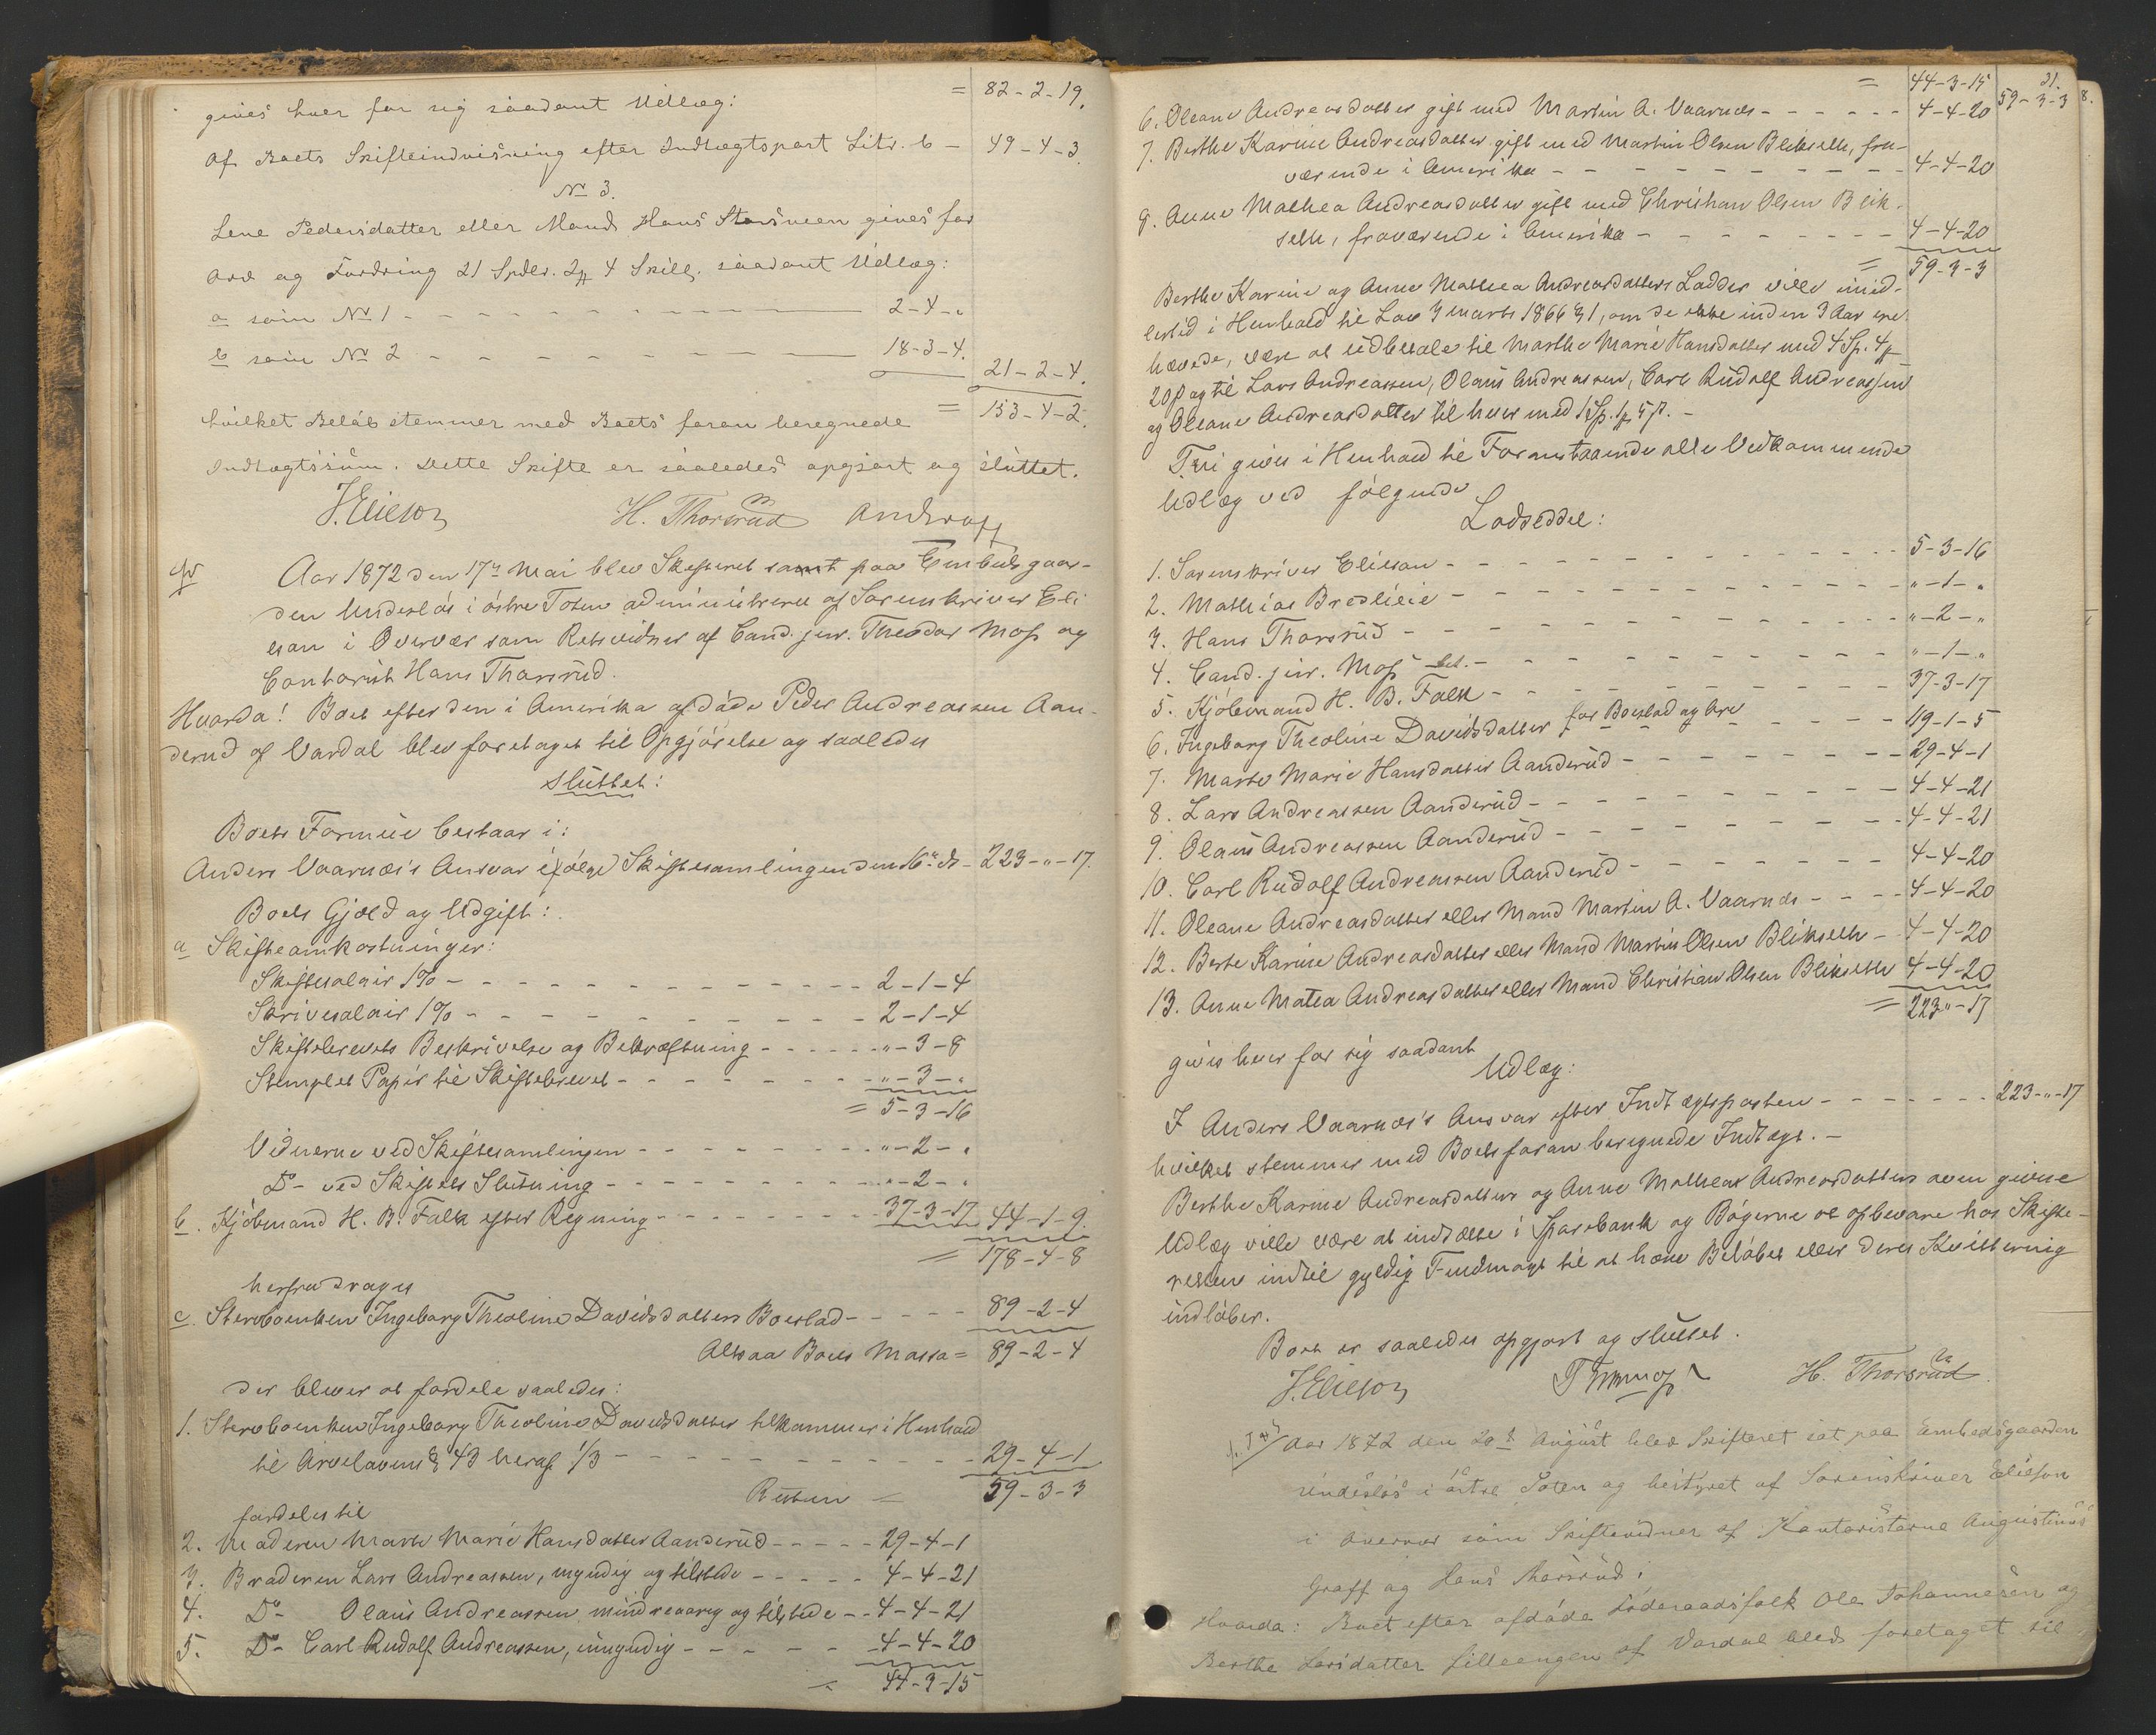 = 82-2-19.
gives hver for sig saadant Udlæg:
Af Boets Skifteindvisning efter Indtægtspost Litr. b - 49-4-3.
No 3.
Lene Pedersdatter eller Mand Hans Stensveen gives for
Arv og Fordring 21 Spdlr. 2 4 Skill. saadant Udlæg:
a som No 1 - - - 2-4-"
b som No 2 - - - 18-3-4.
21-2-4.
= 153-4-2.
hvilket Beløb stemmer med Boets foran beregnede
Indtægtssum. Dette Skifte er saaledes opgjort og sluttet.
J. Elieson H. Thorsrud
Aar 1872 den 17de Mai blev Skifteret samt paa Embedsgaar-
den Undeslós i östre Toten administreret af Sorenskriver Eli
eson i Overvær som Retsvidner af Cand. jur. Theodor Moss og
Contorist Hans Thorsrud.
Hvorda! Boet efter den i Amerika afdöde Peder Andreassen Aan-
derud af Vardal blev foretaget til Opgjörelse og saaledes
sluttet:
Boets Formue bestaar i:
Anders Vaarnæs's Ansvar ifölge Skiftesamlingen den 16de ds - 223-"-17.
Boets Gjæld og Udgift:
a Skifteomkostninger:
Skiftesalair 1% - - - 2-1-4
Skrivesalair 1% - - - 2-1-4
Skiftebrevets Beskrivelse og Bekræftning - - - "-3-8
Stemplet Papir til Skiftebrevet - - - "-3-"
= 5-3-16
Vidnerne ved Skiftesamlingen - - - "-2-"
Do- ved Skiftets Slutning - - - "-2-"
b. Kjöbmand H. B. Falk efter Regning - - - 37-3-17 44-1-9.
= 178-4-8
herfra drages
c Stervboenken Ingeborg Theoline Davidsdatters Boeslod - - - 89-2-4
Altsaa Boets Massa = 89-2-4
der bliver at fordele saaledes:
1. Stervboenken Ingeborg Theoline Davidsdatter tilkommer i Henhold
til Arvelovens § 43 heraf 1/3 - - - 29-4-1
Resten = 59-3-3
fordeles til
2. Moderen Marte Marie Hansdatter Aanderud - - - 29-4-1
3. Broderen Lars Andreassen, myndig og tilstede - - - 4-4-21
4. Do- Olaus Andreassen mindreaarig og tilstede - - 4-4-21
5. Do- Carl Rudolf Andreassen, umyndig - - - 4-4-20
= 44-3-15
31.
= 44-3-15 59-3-3 8.
6. Oleane Andreasdatter gift med Martin A. Vaarnæs - - - 4-4-20
7. Berthe Karine Andreasdatter gift med Martin Olsen Blikseth, fra-
værende i Amerika - - - 4-4-20
8. Anne Mathea Andreasdatter gift med Christian Olsen Blik-
seth, fraværende i Amerika - - - 4-4-20
= 59-3-3
Berthe Karine og Anne Mathea Andreasdatters Lodder ville imid-
lertid i Henhold til Lov 3 marts 1866 § 1, om de ikke inden 3 Aar ere
hævede, være at udbetale til Marthe Marie Hansdatter med 4 Sp. 4
20 ß og til Lars Andreassen, Olaus Andreassen, Carl Rudolf Andreassen
og Oleane Andreasdatter til hver med 1 Sp. 1 5 ß. -
Thi gives i Henhold til Foranstaaende alle Vedkommende
Udlæg ved fölgende
Lodseddel:
1. Sorenskriver Elieson - - - 5-3-16
2. Mathias Bredlieie - - - "-1-"
3. Hans Thorsrud - - - "-2-"
4. Cand. jur. Moss - - - "-1-"
5. Kjöbmand H. B. Falk - - - 37-3-17
6. Ingeborg Theoline Davidsdatter for Boeslod og Arv - - - 119-1-5
7. Marte Marie Hansdatter Aanderud - - - 29-4-1
8. Lars Andreassen Aanderud - - - 4-4-21
9. Olaus Andreassen Aanderud - - - 4-4-21
10. Carl Rudolf Andreassen Aanderud - - - 4-4-20
11. Oleane Andreasdatter eller Mand Martin A. Vaarnæs - - - 4-4-20
12. Berte Karine Andreasdatter eller Mand Martin Olsen Blikseth - 4-4-20
13. Anne Matea Andreasdatter eller Mand Christian Olsen Blikseth 4-4-20
= 223"-17
gives hver for sig saadant
Udlæg:
I Anders Vaarnæs's Ansvar efter Indtægtsposten - - - 223-"-17
hvilket stemmer med Boets foran beregnede Indtægt. -
Berthe Karine Andreasdatters og Anne Matheas Andreasdatters oven givne
Udlæg ville være at indsætte i Sparebank og Bögerne at opbevare hos Skifte-
retten indtil gyldig Fuldmagt til at hæve Belöbet eller deres Kvittering
indlöber.
Boet er saaledes opgjort og sluttet.
J. Elieson H. Thorsrud
Aar 1872 den 20de August blev Skifteret sat paa Embedsgaarden
Undeslös i östre Toten og bestyret af Sorenskriver Elieson
i Overvær som Skiftevidner af Kontoristerne Augustinus
Graff og Hans Thorsrud;
Hvorda: Boet efter afdöde Föderaadsfolk Ole Johannesen og
Berthe Larsdatter Silleengen af Vardal blev foretaget til